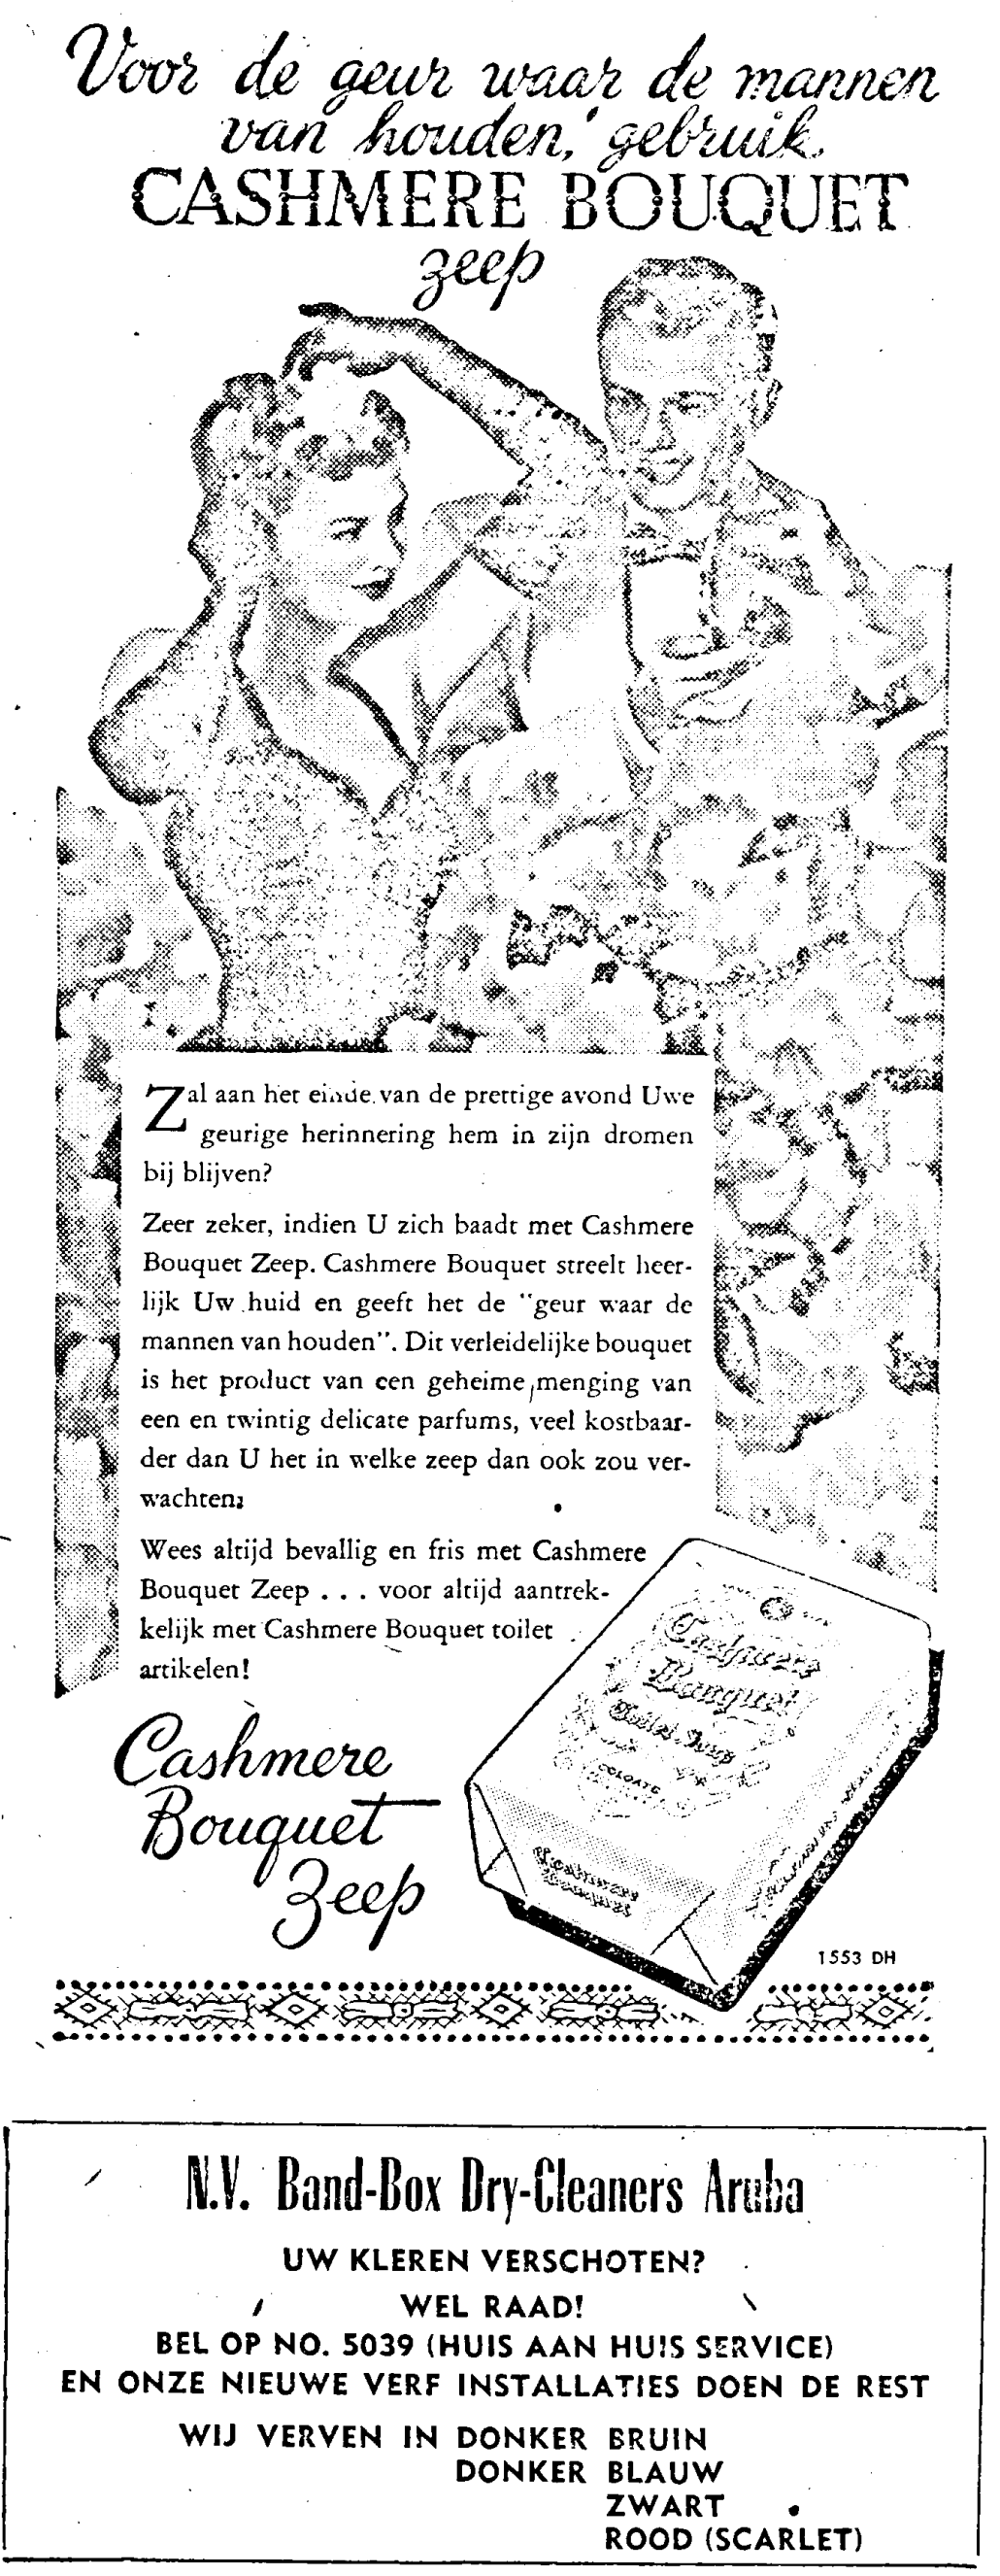 Voor de geur waar de mannen
van houden, gebruik
CASHMERE BOUQUET
zeep
Zal aan het einde van de prettige avond Uwe
geurige herinnering hem in zijn dromen
bij blijven?
Zeer zeker, indien U zich baadt met Cashmere
Bouquet Zeep. Cashmere Bouquet streelt heer-
lijk Uw huid en geeft het de "geur waar de
mannen van houden". Dit verleidelijke bouquet
is het product van een geheime menging van
een en twintig delicate parfums, veel kostbaar-
der dan U het in welke zeep dan ook zou ver-
wachten.
Wees altijd bevallig en fris met Cashmere
Bouquet Zeep . . . voor altijd aantrek-
kelijk met Cashmere Bouquet toilet
artikelen!
Cashmere
Bouquet
Toilet Soap
COLGATE
Cashmere
Bouquet
Cashmere
Bouquet
Zeep
1553 DH
N.V. Band-Box Dry-Cleaners Aruba
UW KLEREN VERSCHOTEN?
WEL RAAD!
BEL OP NO. 5039 (HUIS AAN HUIS SERVICE)
EN ONZE NIEUWE VERF INSTALLATIES DOEN DE REST
WIJ VERVEN IN DONKER BRUIN
DONKER BLAUW
ZWART
ROOD (SCARLET)